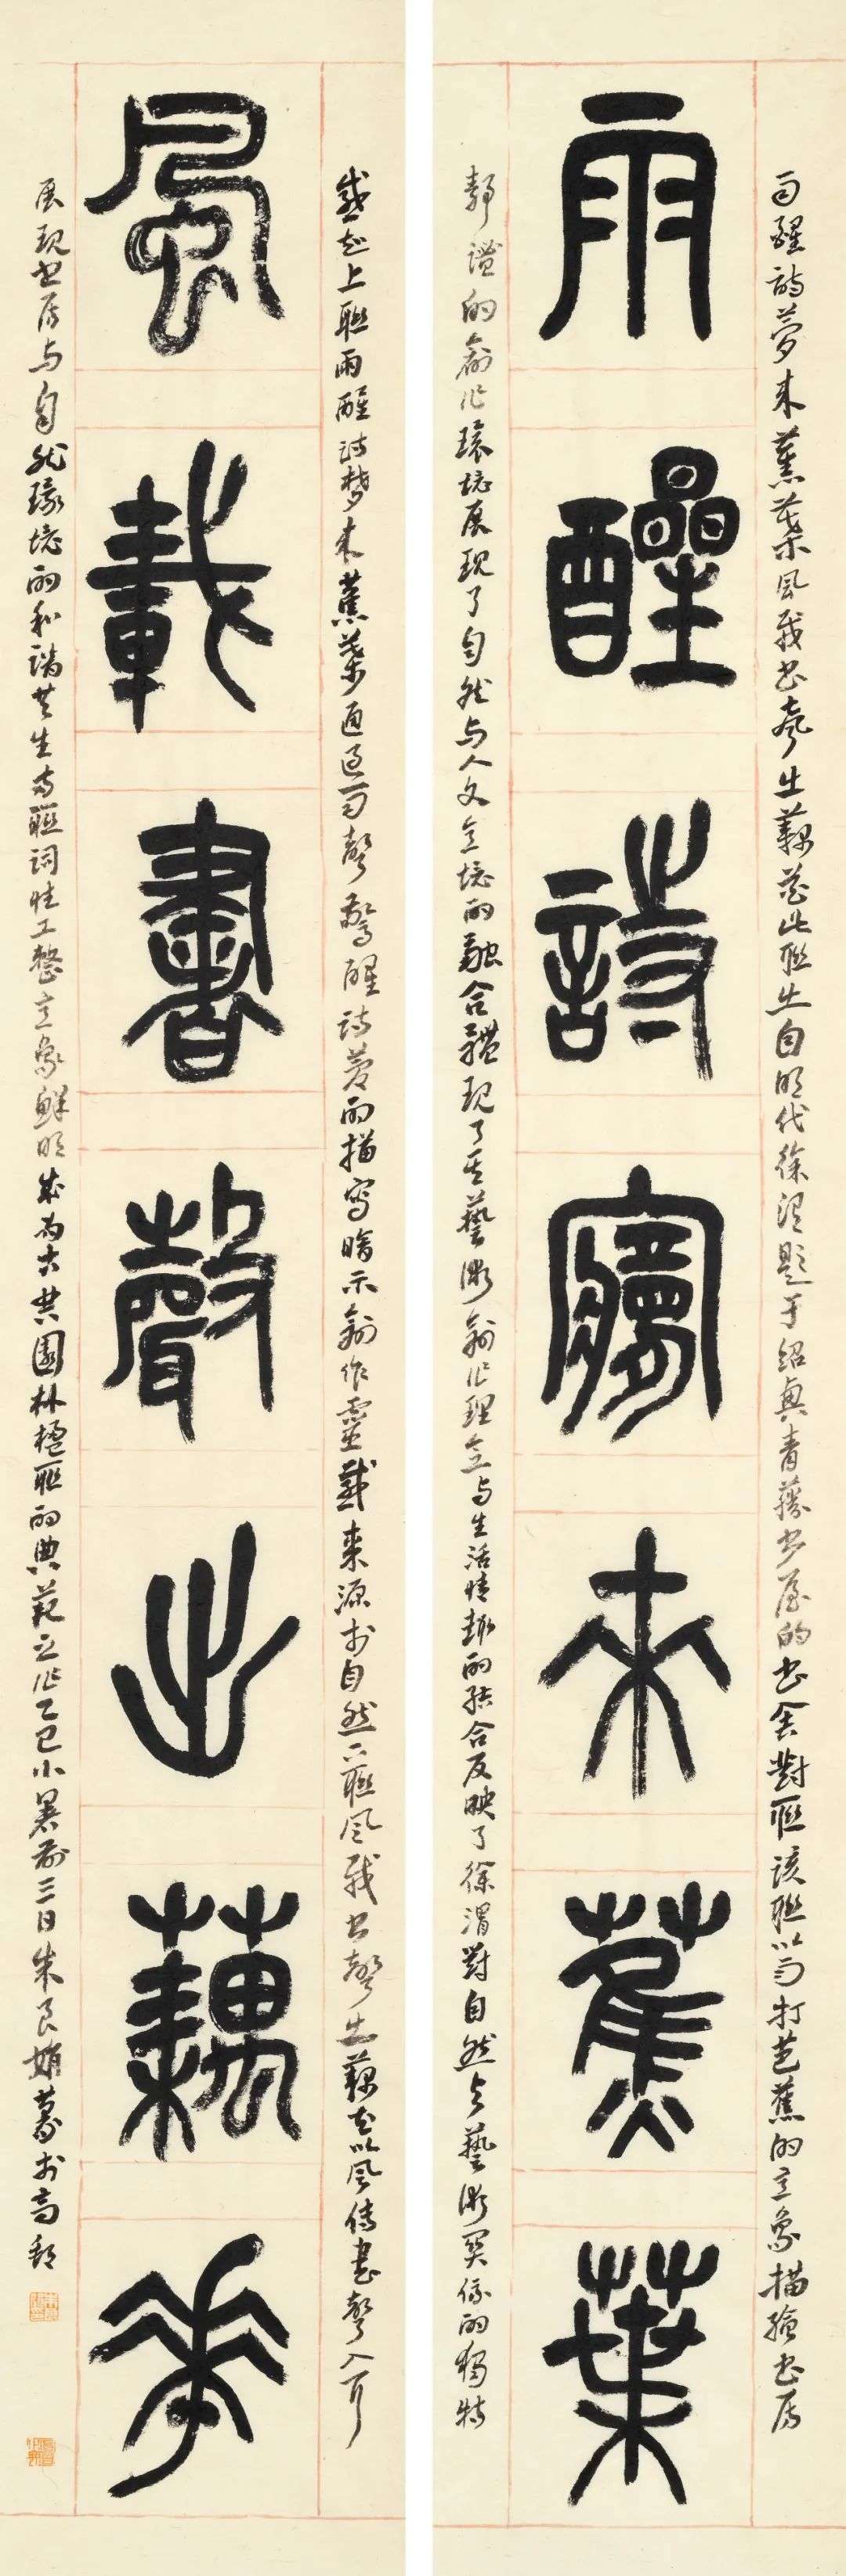 雨醒詩夢来蕉葉風載書聲出藕花此聯出自明代徐渭題于紹興青藤書屋的書舍對聯該聯以雨打芭蕉的意象描繪書房
雨醒詩夢來蕉葉
靜謐的創作環境展現了自然与人文意境的融合體現了其藝術創作理念与生活情趣的結合反映了徐渭對自然与藝術关係的獨特
感知上聯雨醒詩梦来蕉葉通過雨聲驚醒詩夢的描寫暗示創作靈感来源於自然下聯風載書聲出藕花以風傳書聲入耳
風載書聲出藕花
展現書房与自然環境的和諧共生两聯詞性工整意象鲜明成為古典園林楹聯的典范之作乙巳小暑前三日朱良娟篆於高郵